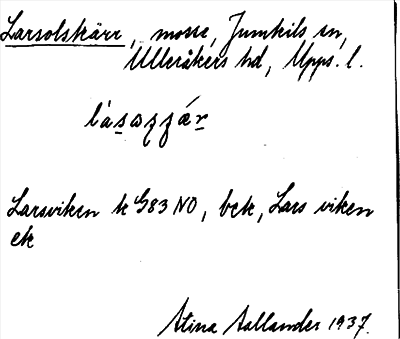 Larsolskärr, mosse, Jumkils sn,
Ulleråkers hd, Upps. l.
Larsviken k G83 NO, bek, Lars viken
ek
Stina Sallander 1937.